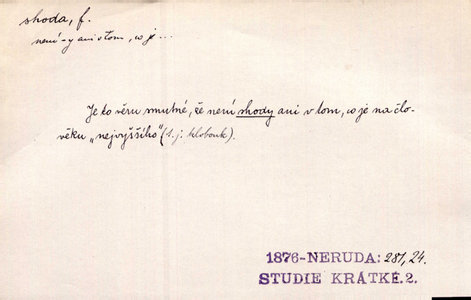 shoda, f.
není -y ani v tom, co je ...
Je to věru smutné, že není shody ani v tom, co je na člo-
věku „nejvyššího" (t. j. klobouk).
1876-NERUDA: 281, 24.
STUDIE KRÁTKÉ.2.